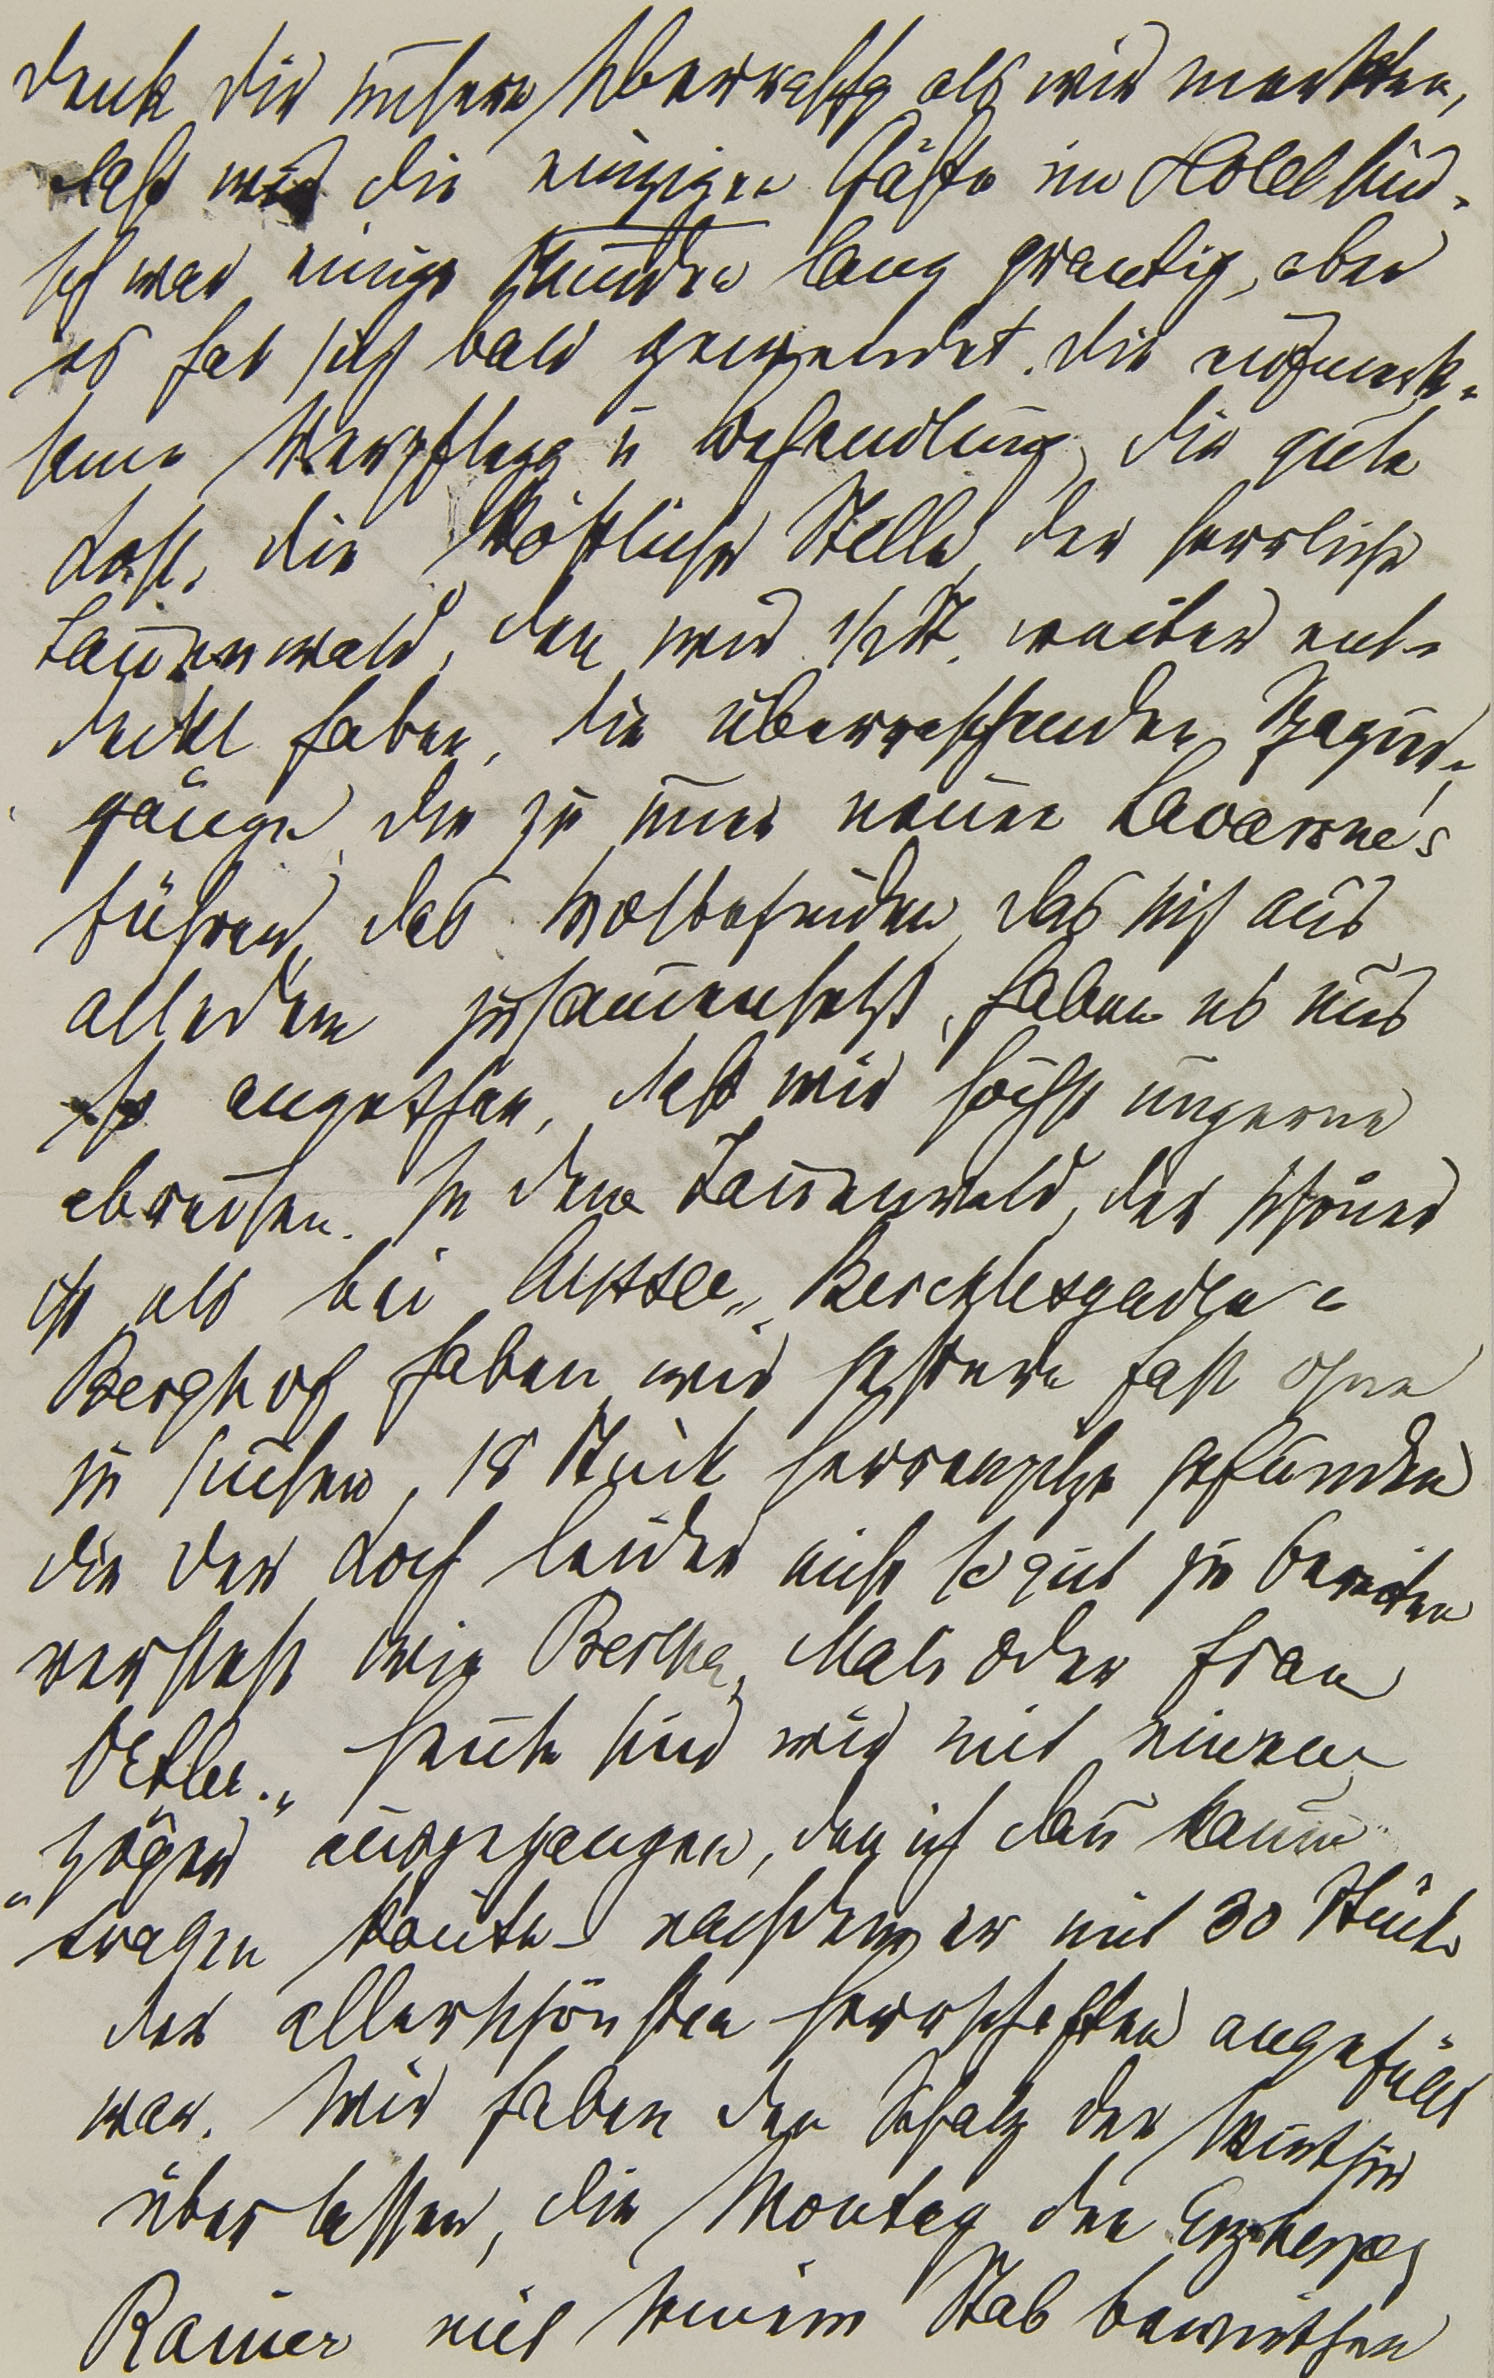 denk dir unsere Überraschg als wir merkten,
daß wir die einzigen Gäste im Hotel sind.
Ich war einige Stunden lang grantig, aber
es hat sich bald gewendet. Die aufmerk-
same Verpflegg u Behandlung, die gute
Kost, die köstliche Stille, der herrliche
Tannenwald, den wir ½ St. weiter ent-
deckt haben, die überraschenden Spazier-
gänge, die zu immer neuen Lavarone's
führen, das Wolbefinden, das sich aus
alledem zusammensetzt, haben es uns
so angethan, daß wir höchst ungerne
abreisen. In dem Tannenwald, der schöner
ist als bei Aussee, Berchtesgaden -
Berghof haben wir gestern fast ohne
zu suchen, 18 Stück Herrenpilze gefunden
die der Koch leider nicht so gut zu bereiten
versteht wie Bertha, Mali oder Frau
Oetler. Heute sind wir mit einem
"Zöger" ausgegangen, den ich dann kaum
tragen konnte nachdem er mit 30 Stück
der allerschönsten Herrschaften angefüllt
war. Wir haben den Schatz der Wirthin
überlassen, die Montag den Erzherzog
Rainer mit seinem Stab bewirthen